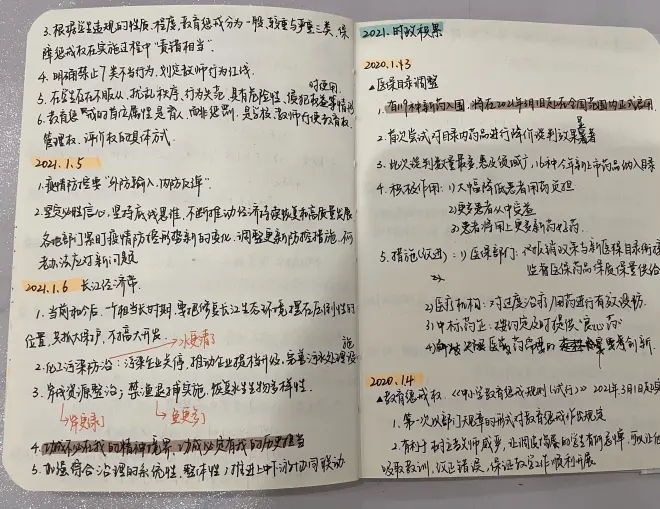 3. 根据学生违规的性质、程度, 教育惩戒分为一般, 较重与严重三类, 保
障惩戒权在实施过程中“责错相当”.
4. 明确禁止7类不当行为, 划定教师行为红线.
5. 在学生存在不服从, 扰乱秩序, 行为失范, 具有危险性, 侵犯权益等情况
时使用.
6. 教育惩戒的首位属性是育人, 而非惩罚, 是学校、教师行使教育权、
管理权、评价权的具体方式.
2021.1.5
1. 疫情防控要“外防输入, 内防反弹”.
2. 坚定必胜信心, 坚持底线思维, 不断推动经济持续恢复和高质量发展
各地部门 疫情防控形势新的变化. 调整更新防控措施. 研
考办法应对新问题
2021.1.6 长江经济带
1. 当前和今后一个相当长时期, 要把修复长江生态环境摆在压倒性的
位置, 共抓大保护, 不搞大开发.
水更清了
2. 化工污染防治: 污染企业关停, 推动企业提档升级, 完善污水处理设
施
3. 岸线资源整治; 禁渔退捕实施, 恢复水生生物多样性.
岸更绿了
鱼更多了
4. 功成不必在我的精神境界、功成必定有我的历史担当
5. 加强综合治理的系统性、整体性; 推进上中下游协同联动
2021. 时政积累
2020.1.3
▲医保目录调整
1. 有119种新药入围, 将在2021年3月1日起在全国范围内正式启用.
2. 首次尝试对目录内药品进行降价谈判效果显著
3. 此次谈判数量最多, 惠及领域广, 16种今年新上市药品纳入目录
4. 积极作用: 1) 大幅降低患者用药负担
2) 更多患者从中受益
3) 患者将用上更多新药好药.
5. 措施(改进): 1) 医保部门: 报销政策与新医保目录衔接
监督医保药品保质保量供给
2) 医疗机构: 对过度治疗/用药进行有效设防.
3) 中标药企: 按约定及时提供“良心药”
4) 创新
2020.1.4
▲教育惩戒权. 《中小学教育惩戒规则(试行)》2021年3月1日起实
1. 第一次以部门规章的形式对教育惩戒作出规定
2. 有利于树立教师威步, 让调皮捣蛋的学生有所忌惮,
吸取教训, 改正错误, 保证教学工作顺利开展